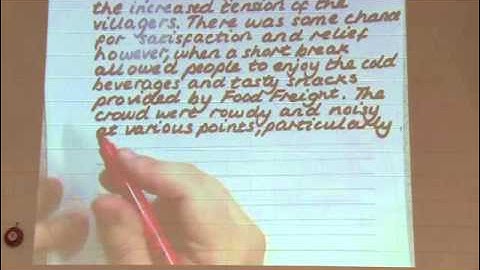 the increased tension of the
villagers. There was some chance
for satisfaction and relief
however, when a short break
allowed people to enjoy the cold
beverages and tasty snacks
provided by Food Freight. The
crowd went rowdy and noisy
at various points, particularly